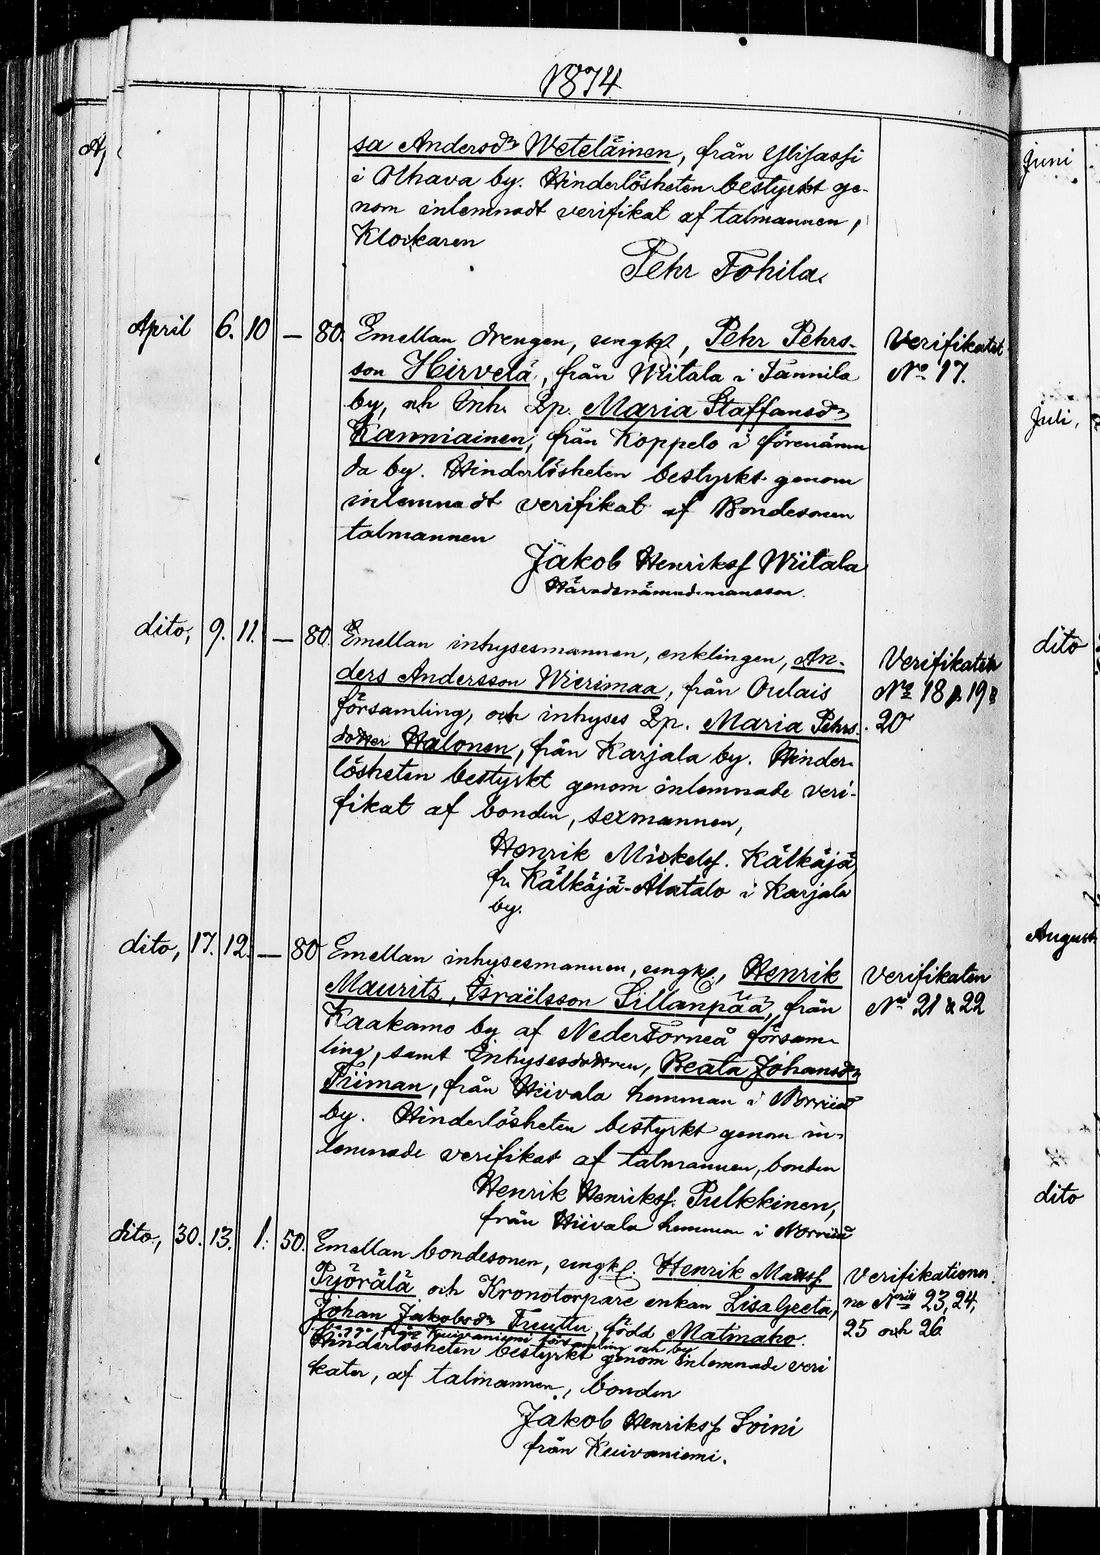 1874
sa Andersdr Weteläinen, från Ylijassi
i Olhava by. Hinderlösheten bestyrkt ge-
nom inlemnadt verifikat af talmannen,
Klockaren
Pehr Tohila.
April 6. 10 — 80. Emellan drengen, ungk., Pehr Pehrs- Verifikatet
son Hirvelä, från Wiitala i Jännilä No 17.
by, och Inh. Pp. Maria Staffansdr
Kanniainen, från Koppelo i förenämn
da by. Hinderlösheten bestyrkt genom
inlemnadt verifikat af Bondesonen
talmannen
Jakob Henriksf Wiitala
Häradsnämndemansson.
dito, 9. 11. — 80. Emellan inhysesmannen, enklingen, An- Verifikaten
ders Andersson Wierimaa, från Oulais No 18, 19 &
församling, och inhyses Pp. Maria Pehrs 20
dotter Halonen, från Karjala by. Hinder-
lösheten bestyrkt genom inlemnade veri-
fikat af bonden, sexmannen,
Henrik Mickelsf. Kälkäjä
fr. Kälkäjä-Alatalo i Karjala
by.
dito, 17. 12. — 80 Emellan inhysesmannen, ungk., Henrik Verifikaten
Maurits, Israëlsson Sillanpää, från No 21 & 22
Kaakamo by af NederTorneå försam-
ling, samt Inhysesdottren, Beata Johansdr
Tiiman, från Hiivala hemman i Norriid
by. Hinderlösheten bestyrkt genom in-
lemnade verifikat af talmannen, bonden
Henrik Henriksf. Pulkkinen,
från Hiivala hemman i Norriid
dito, 30. 13. 1. 50. Emellan bondesonen, ungk. Henrik Matsf Verifikationer
Pyörälä och Kronotorpare enkan Lisa Greta, ne Nris 23, 24,
Johan Jakobsdr Truttu, född Matinaho. 25 och 26
från Kuivaniemi församling och by
Hinderlösheten bestyrkt genom inlemnade veri
kater, af talmannen, bonden
Jakob Henriksf Soini
från Kuivaniemi.
Juni
Juli,
dito
August
dito